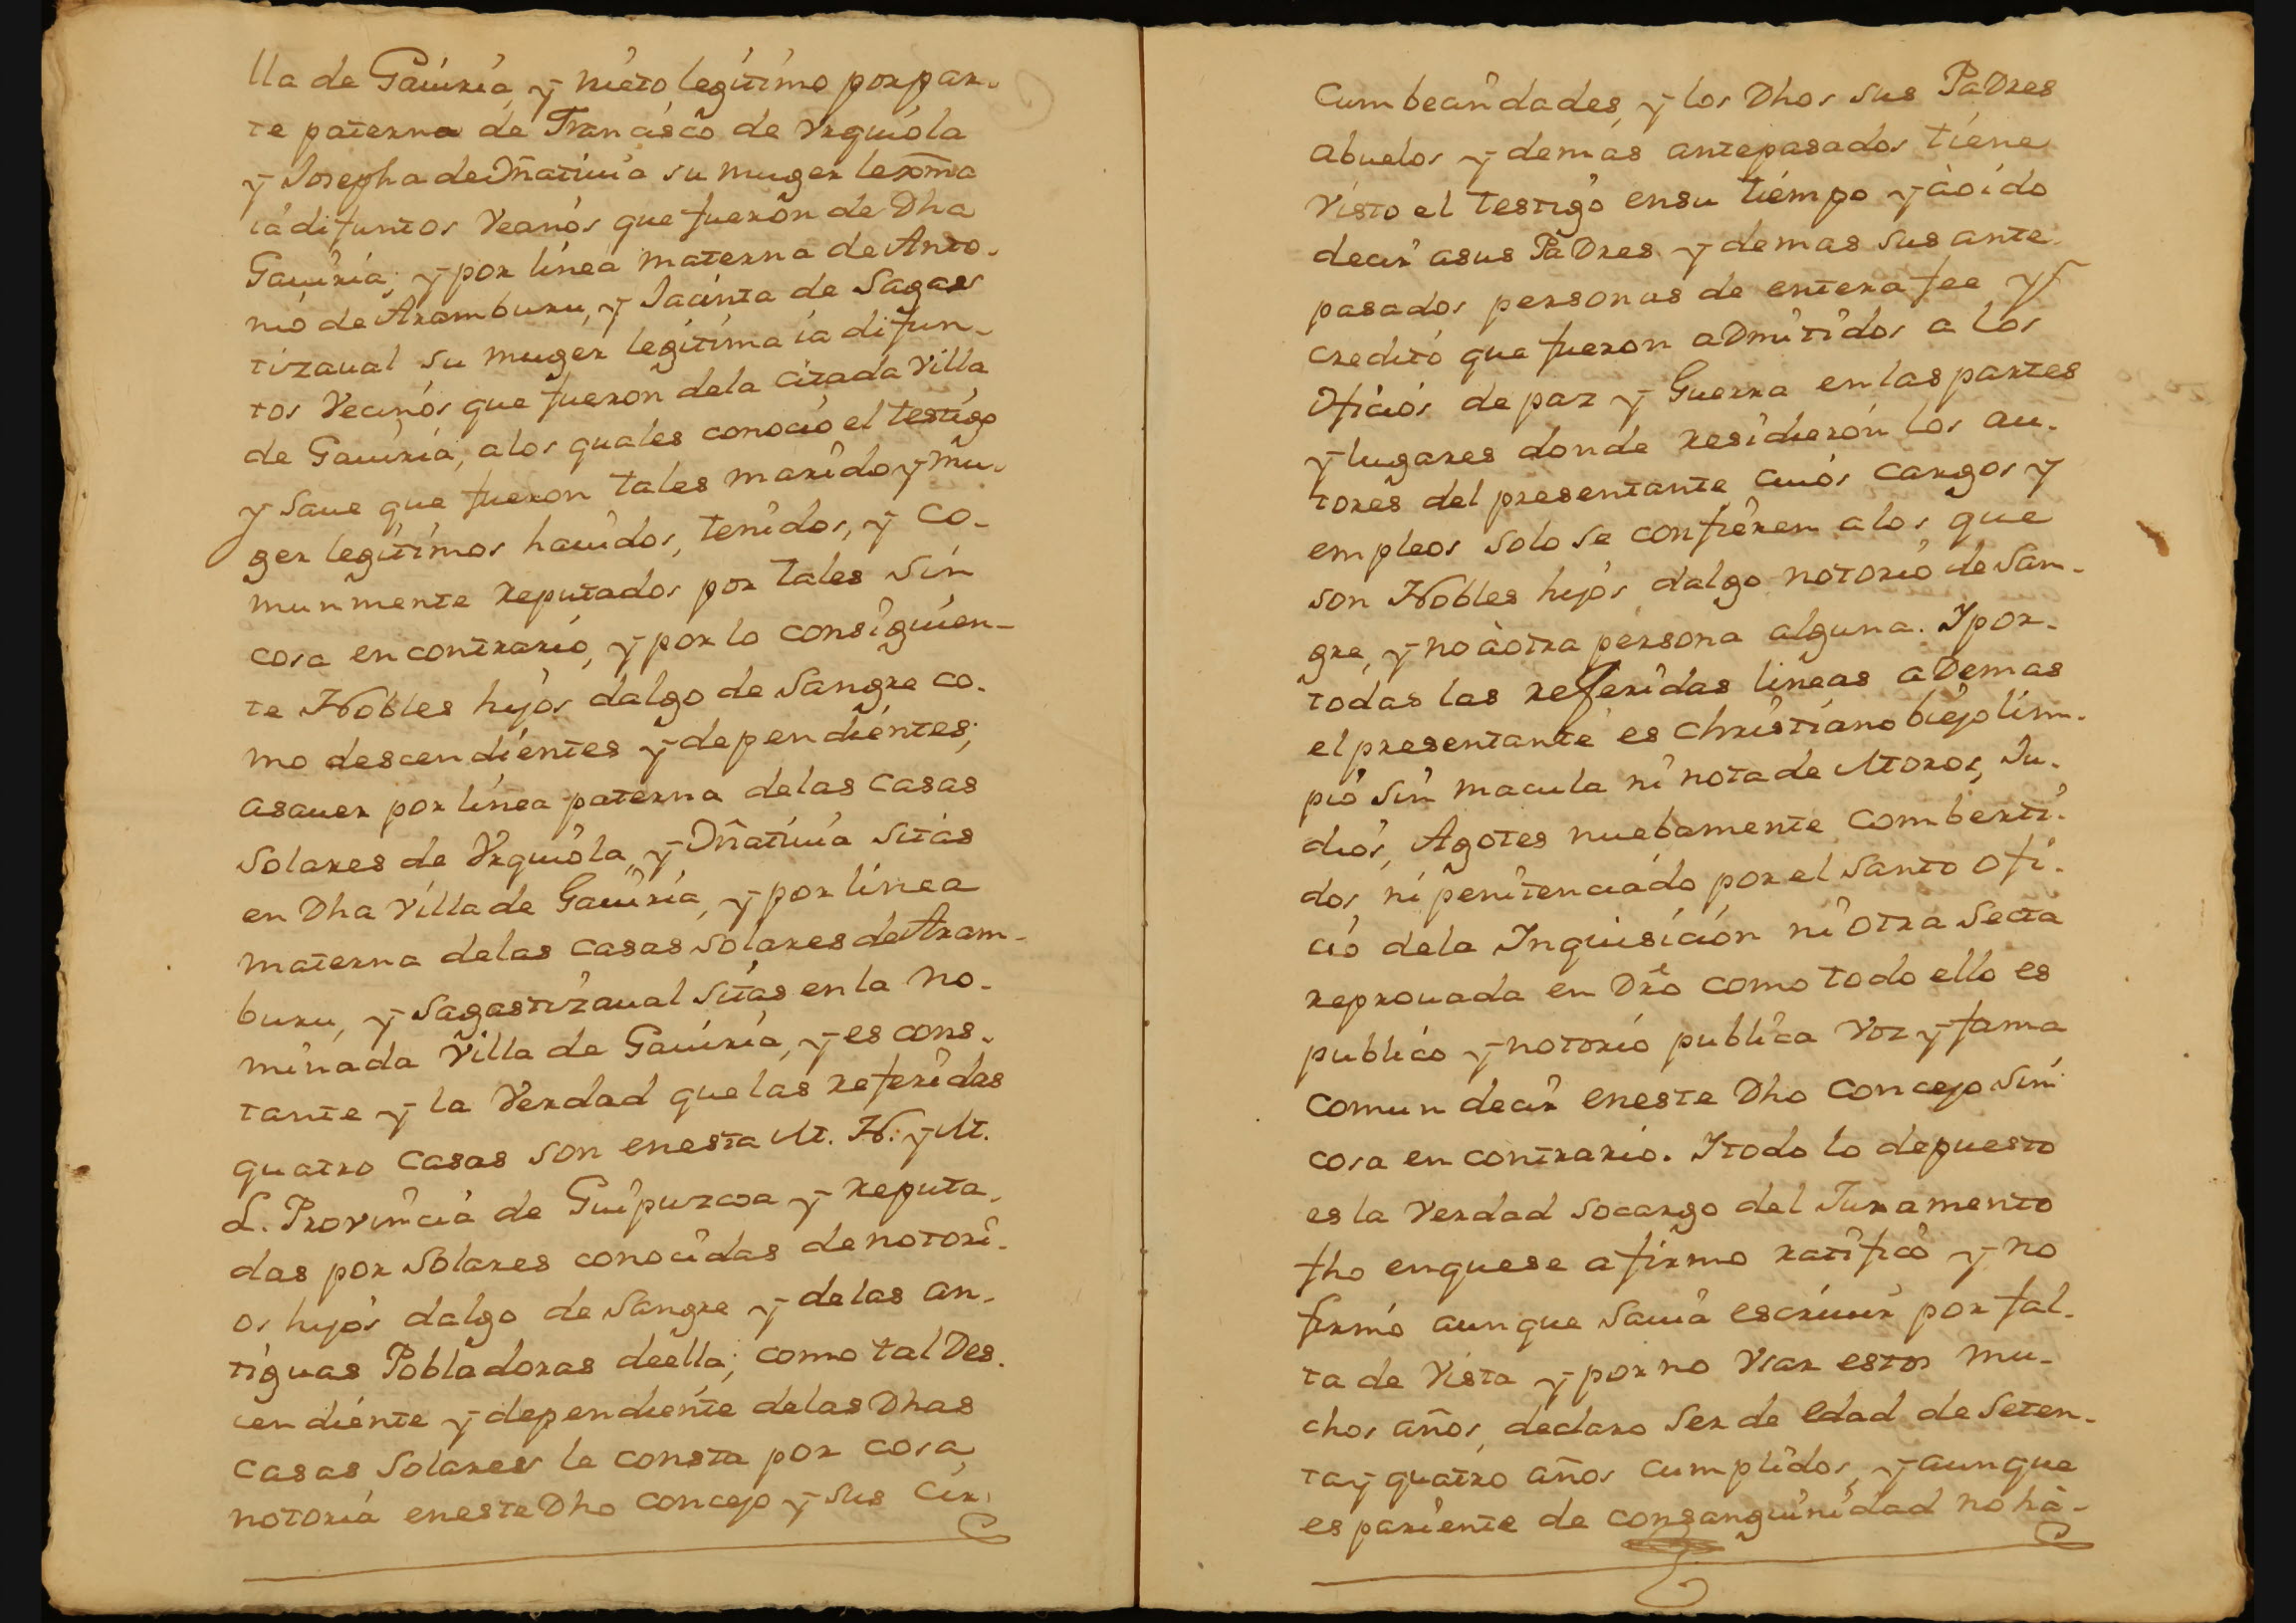 lla de Gauiria, y nieto legitimo por par-
te paterna de Francisco de Vrquiola
y Josepha de Oñatiuia su muger lexma
ia difuntos Veanos que fueron de Dha
Gauiria; y por linea materna de Anto-
nio de Aramburu, y Jacinta de Sagas
tizaual su muger legitima ia difun-
tos Vecinos que fueron dela citada Villa
de Gauiria, alos quales conocio el testigo
y saue que fueron tales marido y mu-
ger legitimos hauidos, tenidos, y co-
munmente reputados por tales sin
cosa en contrario, y por lo consiguien-
te Nobles hijos dalgo de sangre co-
mo descendientes y dependientes;
asauer por linea paterna delas casas
solares de Vrquiola, y Oñatiuia sitas
en Dha Villa de Gauiria, y por linea
materna delas casas solares de Aram-
buru, y Sagastizaual sitas en la no-
minada Villa de Gauiria, y es cons-
tante y la Verdad que las referidas
quatro casas son enesta M. N. y M.
L. Provincia de Guipuzcoa y reputa-
das por solares conocidas de notori-
os hijos dalgo de sangre y delas an-
tiguas Pobladoras deella; como tal Des-
cendiente y dependiente delas Dhas
casas solares le consta por cosa
notoria eneste Dho concejo y sus cir-
cumbeandades, y los Dhos sus PaDres
abuelos y demas antepasados tiene
Visto el testigo ensu tiempo y à oido
decir asus PaDres y demas sus ante
pasados personas de entera fee y
credito que fueron aDmitidos a los
Oficios de paz y Guerra en las partes
y lugares donde residieron los au-
tores del presentante cuios cargos y
empleos solo se confieren alos que
son Nobles hijos dalgo notorio de san-
gre, y no à otra persona alguna. Y por-
todas las referidas lineas aDemas
el presentante es christiano biejo lim-
pio sin macula ni nota de Moros, Ju-
dios, Agotes nuebamente comberti-
dos, ni penitenciado por el santo ofi-
cio dela Inquisicion ni otra secta
reprouada en Dro como todo ello es
publico y notorio publica Voz y fama
comun decir eneste Dho concejo sin
cosa en contrario. Y todo lo depuesto
es la Verdad socargo del Juramento
fho enquese afirmo ratifico y no
firmo aunque sauia escriuir por fal-
ta de Vista y por no Vsar estos mu-
chos años, declaro ser de edad de seten-
ta y quatro años cumplidos, y aunque
es pariente de consanguinidad no hà-